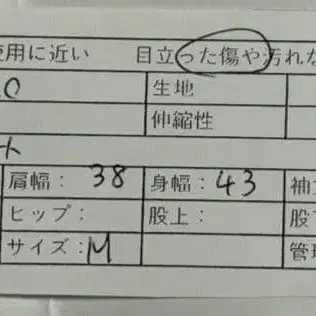 使用に近い 目立った傷や汚れな
生地
伸縮性
肩幅: 38 身幅: 43 袖
ヒップ: 股上: 股下
サイズ: M 管理